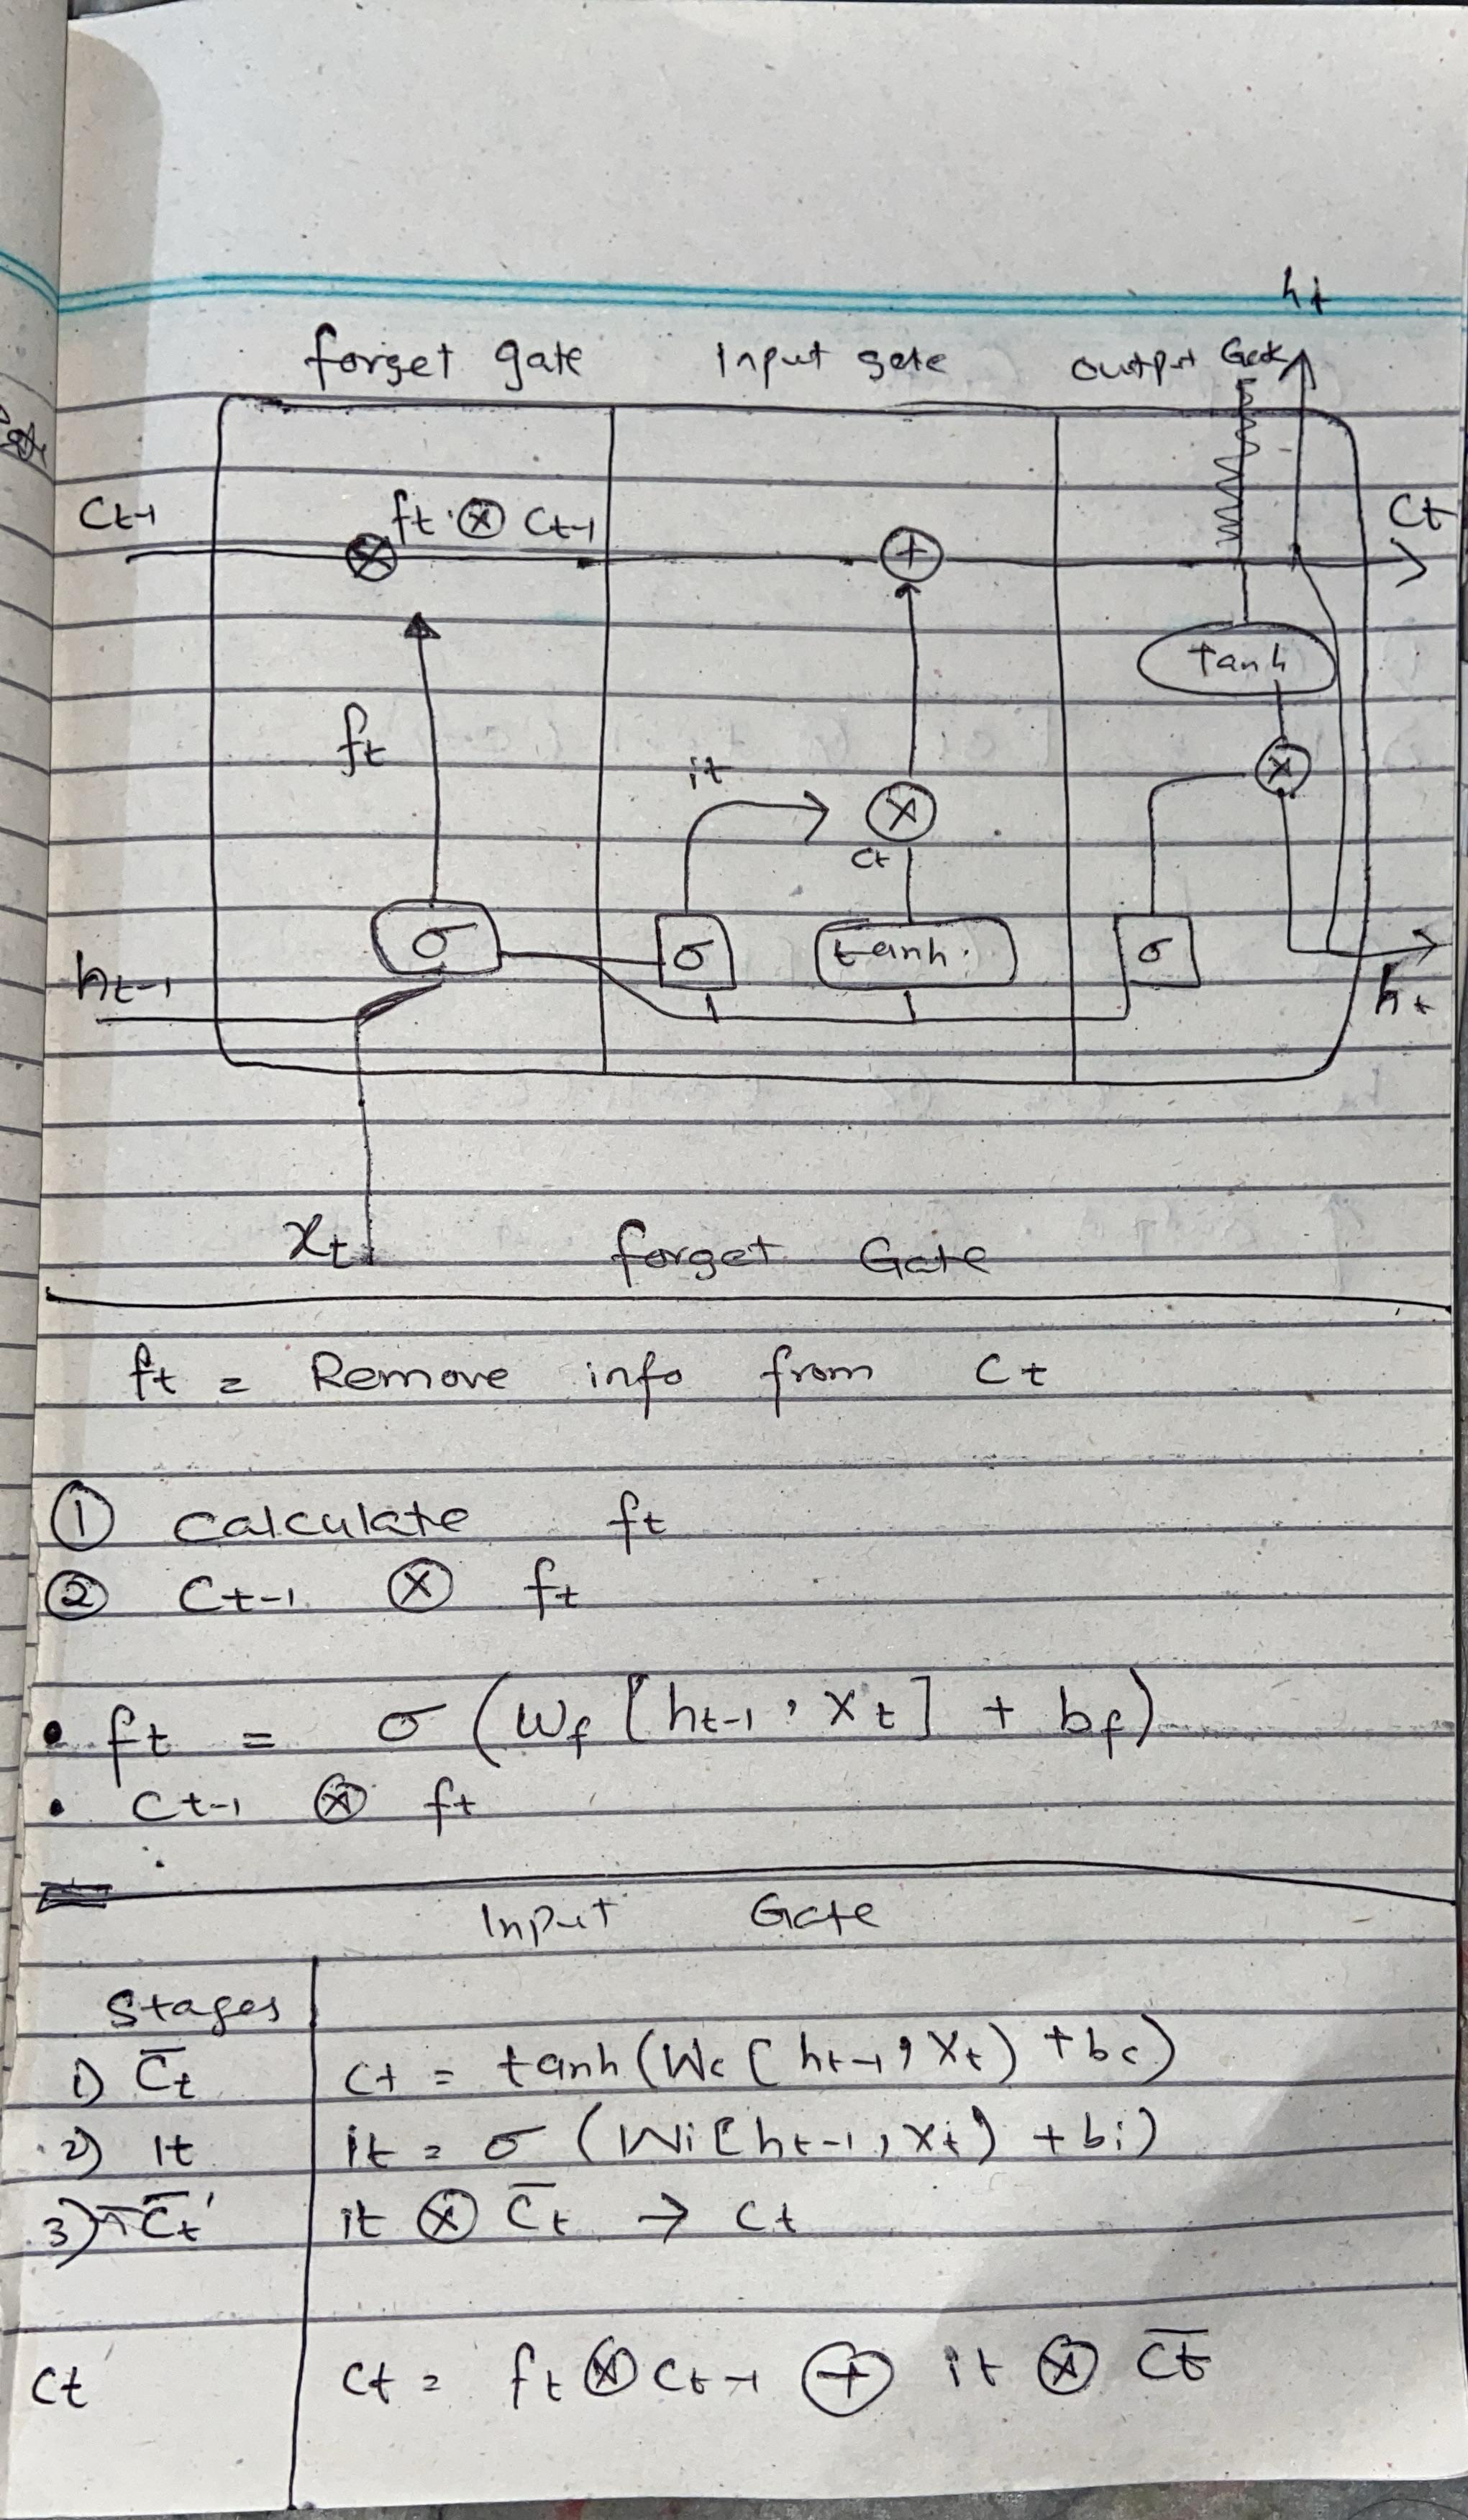 ht
forget gate Input gate output Gate
Ct-1 ft · ⊗ Ct-1 Ct
⊗ +
Tanh
ft it ⊗
⊗
Ct
σ σ tanh. σ
ht-1 ht
xt
forget Gate
ft = Remove info from Ct
① Calculate ft
② Ct-1 ⊗ ft
• ft = σ (Wf [ht-1, Xt] + bf)
• Ct-1 ⊗ ft
Input Gate
Stages
1) C̅t Ct = tanh(Wc [ht-1, Xt) + bc)
2) It it = σ (Wi[ht-1, Xt) + bi)
3) C̅t' it ⊗ C̅t → Ct
Ct Ct = ft ⊗ Ct-1 ⊕ it ⊗ C̅t